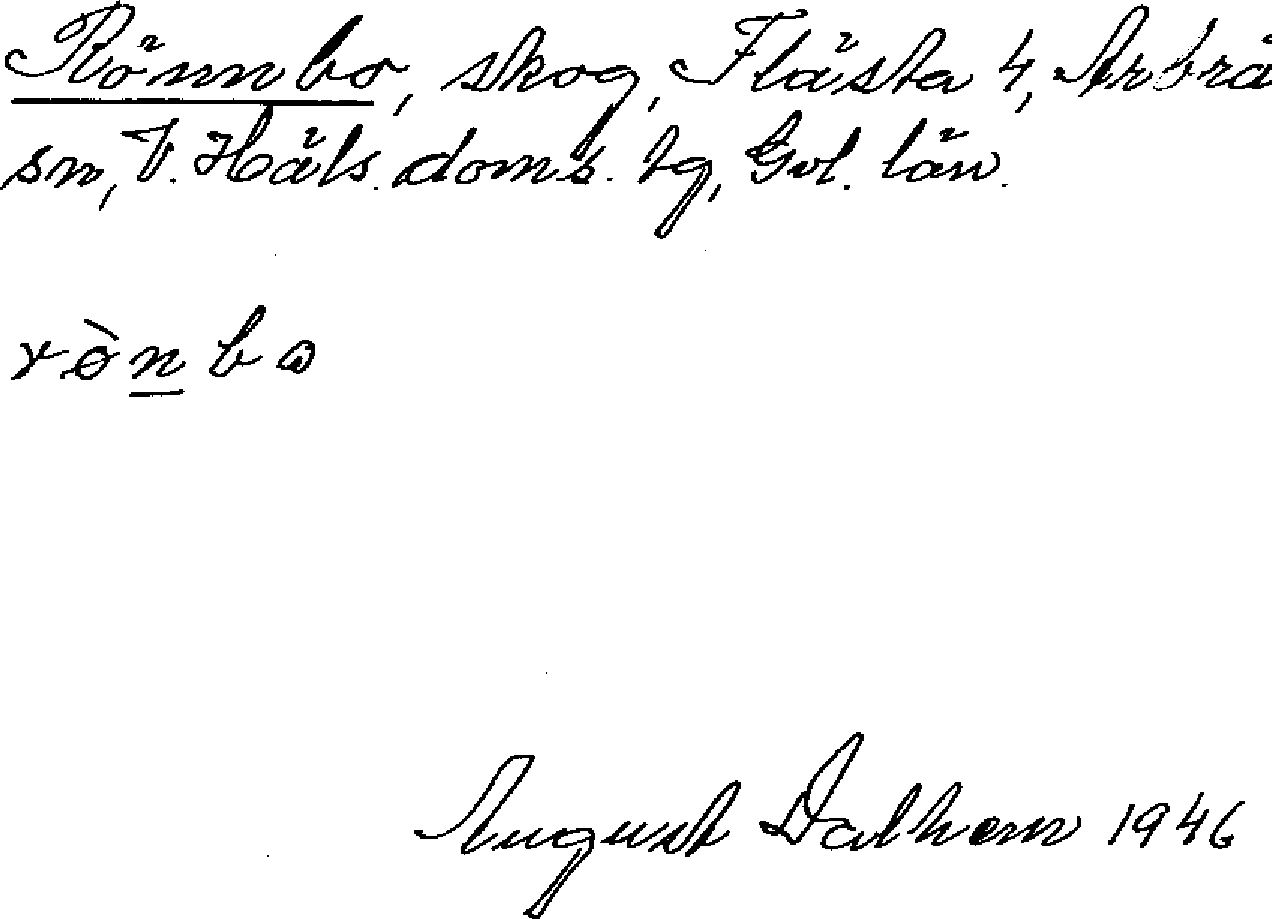 Rönnbo, skog, Flästa 4, Arbrå
sn, V. Häls. doms. tg, Gvl. län.
rò̈nbω
August Dalhem 1946